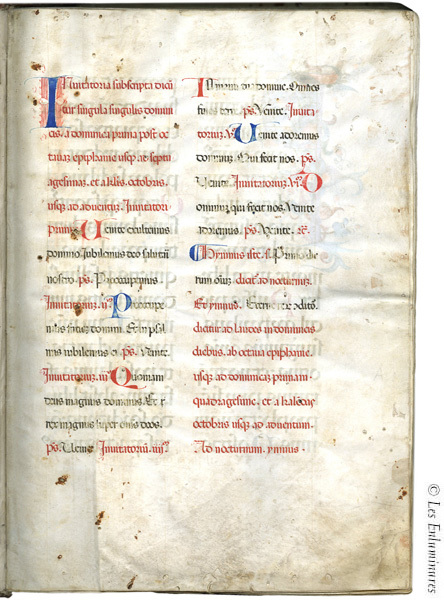 Inuitatoria subscripta dicu
tur singula singulis domini
cis. a dominica prima post oc
tauas epiphanie usq ad septu
agesimas. et a klis. octobris.
usq ad aduentuz. Inuitatori
primuz. Uenite exultemus
domino iubilemus deo salutari
nostro. ps. Preoccupemus.
Inuitatoriuz. ii. Preoccupe
mus faciez domini. Et in psal
mis iubilemus ei. ps. Uenite.
Inuitatoriuz. iii. Quoniam
deus magnus dominus. Et r
rex magnus super omnes deos.
ps. Uenite. Inuitatoriu. iiii.
In manu tua domine. Omnes
fines terre. ps. Uenite. Inuita
toriuz. v. Uenite adoremus
dominuz. Qui fecit nos. ps.
Uenite. Inuitatoriuz. vi. D
ominuz qui fecit nos. Uenite
adoremus. ps. Uenite.
Hymnus iste. s. Primo die
rum omniuz. dicitur ad nocturnuz.
Et ymnus. Eterne rerum conditor.
dicitur ad laudes in dominicis
diebus. ab octaua epiphanie.
usq ad dominicaz primam
quadragesime. et a kalendas
octobris usq ad aduentum.
Ad nocturnum. ymnus.
© Les Enluminures